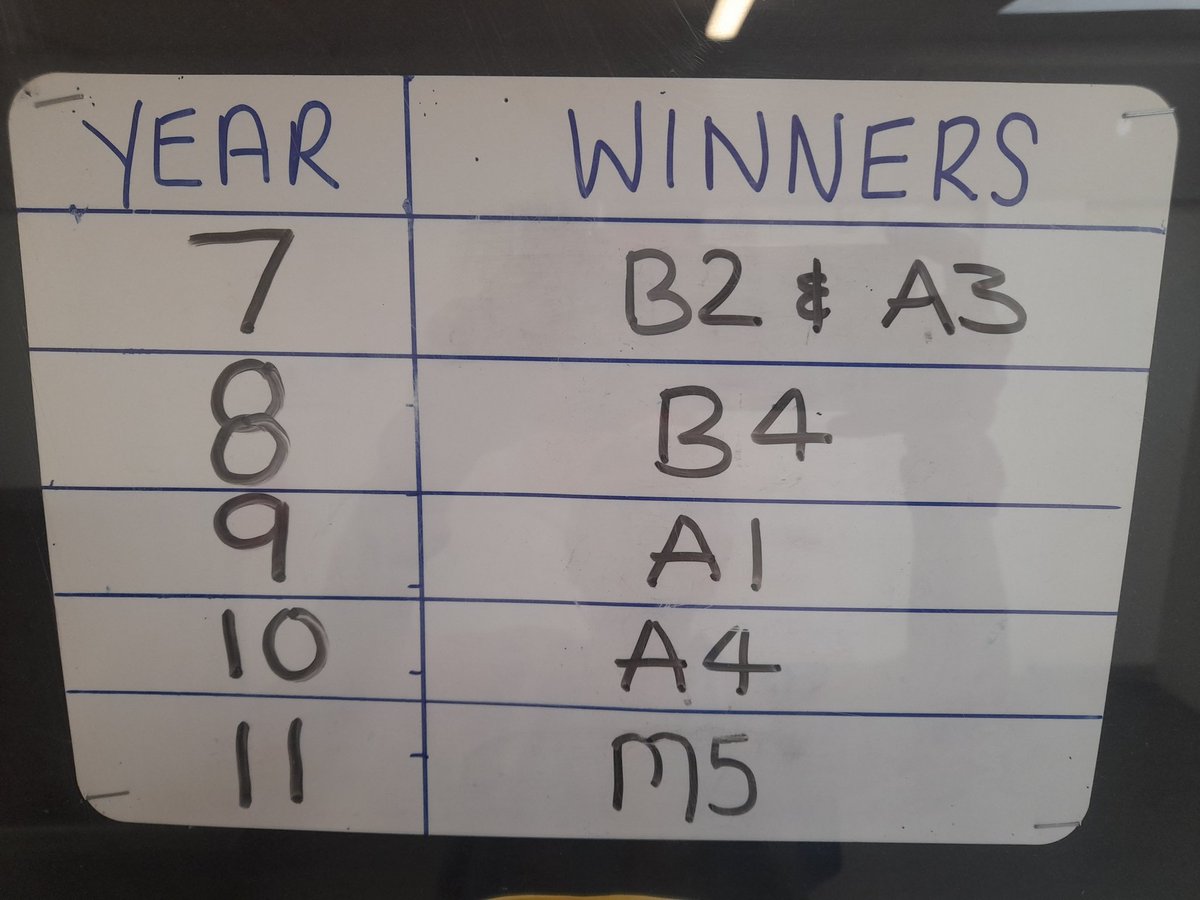 YEAR WINNERS
7 B2 & A3
8 B4
9 A1
10 A4
11 M5